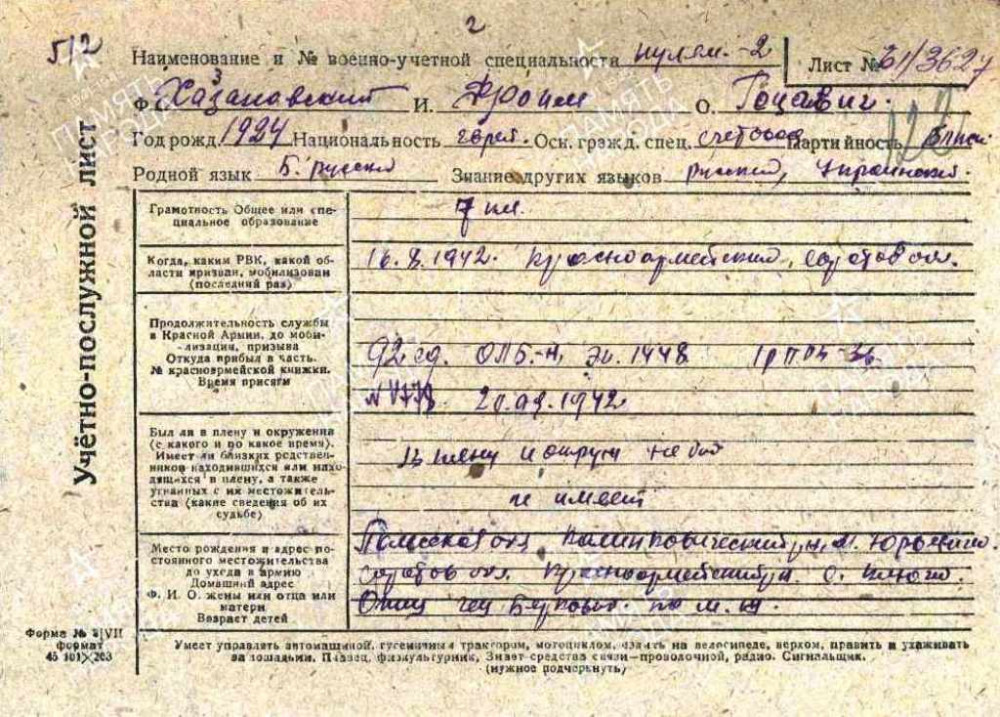 5/2
2
Наименование и № военно-учетной специальности пулем.-2 Лист № 61/3627
Ф. Хазановский И. Фроим О.
Год рожд. 1924 Национальность еврей. Осн. гражд. спец. счетовод Партийность
Родной язык Б. русский Знание других языков русский, Украинский.
Учётно-послужной лист
Грамотность Общее или специальное образование
7 кл.
Когда, каким РВК, какой области призван, мобилизован (последний раз)
16.8.1942. Красноармейский, саратов обл.
Продолжительность службы в Красной Армии, до мобилизации, призыва
Откуда прибыл в часть.
№ красноармейской книжки.
Время присяги
92 сд. 1448
20.09.1942
Был ли в плену и окружении (с какого и по какое время).
Имеет ли близких родственников находившихся или находящихся в плену, а также угнанных с их местожительства (какие сведения об их судьбе)
В плену и окруж не был
не имеет
Место рождения и адрес постоянного местожительства до ухода в армию
Домашний адрес
Ф. И. О. жены или отца или матери
Возраст детей
Полесская обл, м. Юровичи.
саратов обл. Красноармейский р-н с.
Отец
Форма № 4/VII
Формат
45 101×203
Умеет управлять автомашиной, гусеничным трактором, мотоциклом, ездить на велосипеде, верхом, править и ухаживать
за лошадьми. Пловец, физкультурник, Знает средства связи—проволочной, радио. Сигнальщик.
(нужное подчеркнуть)